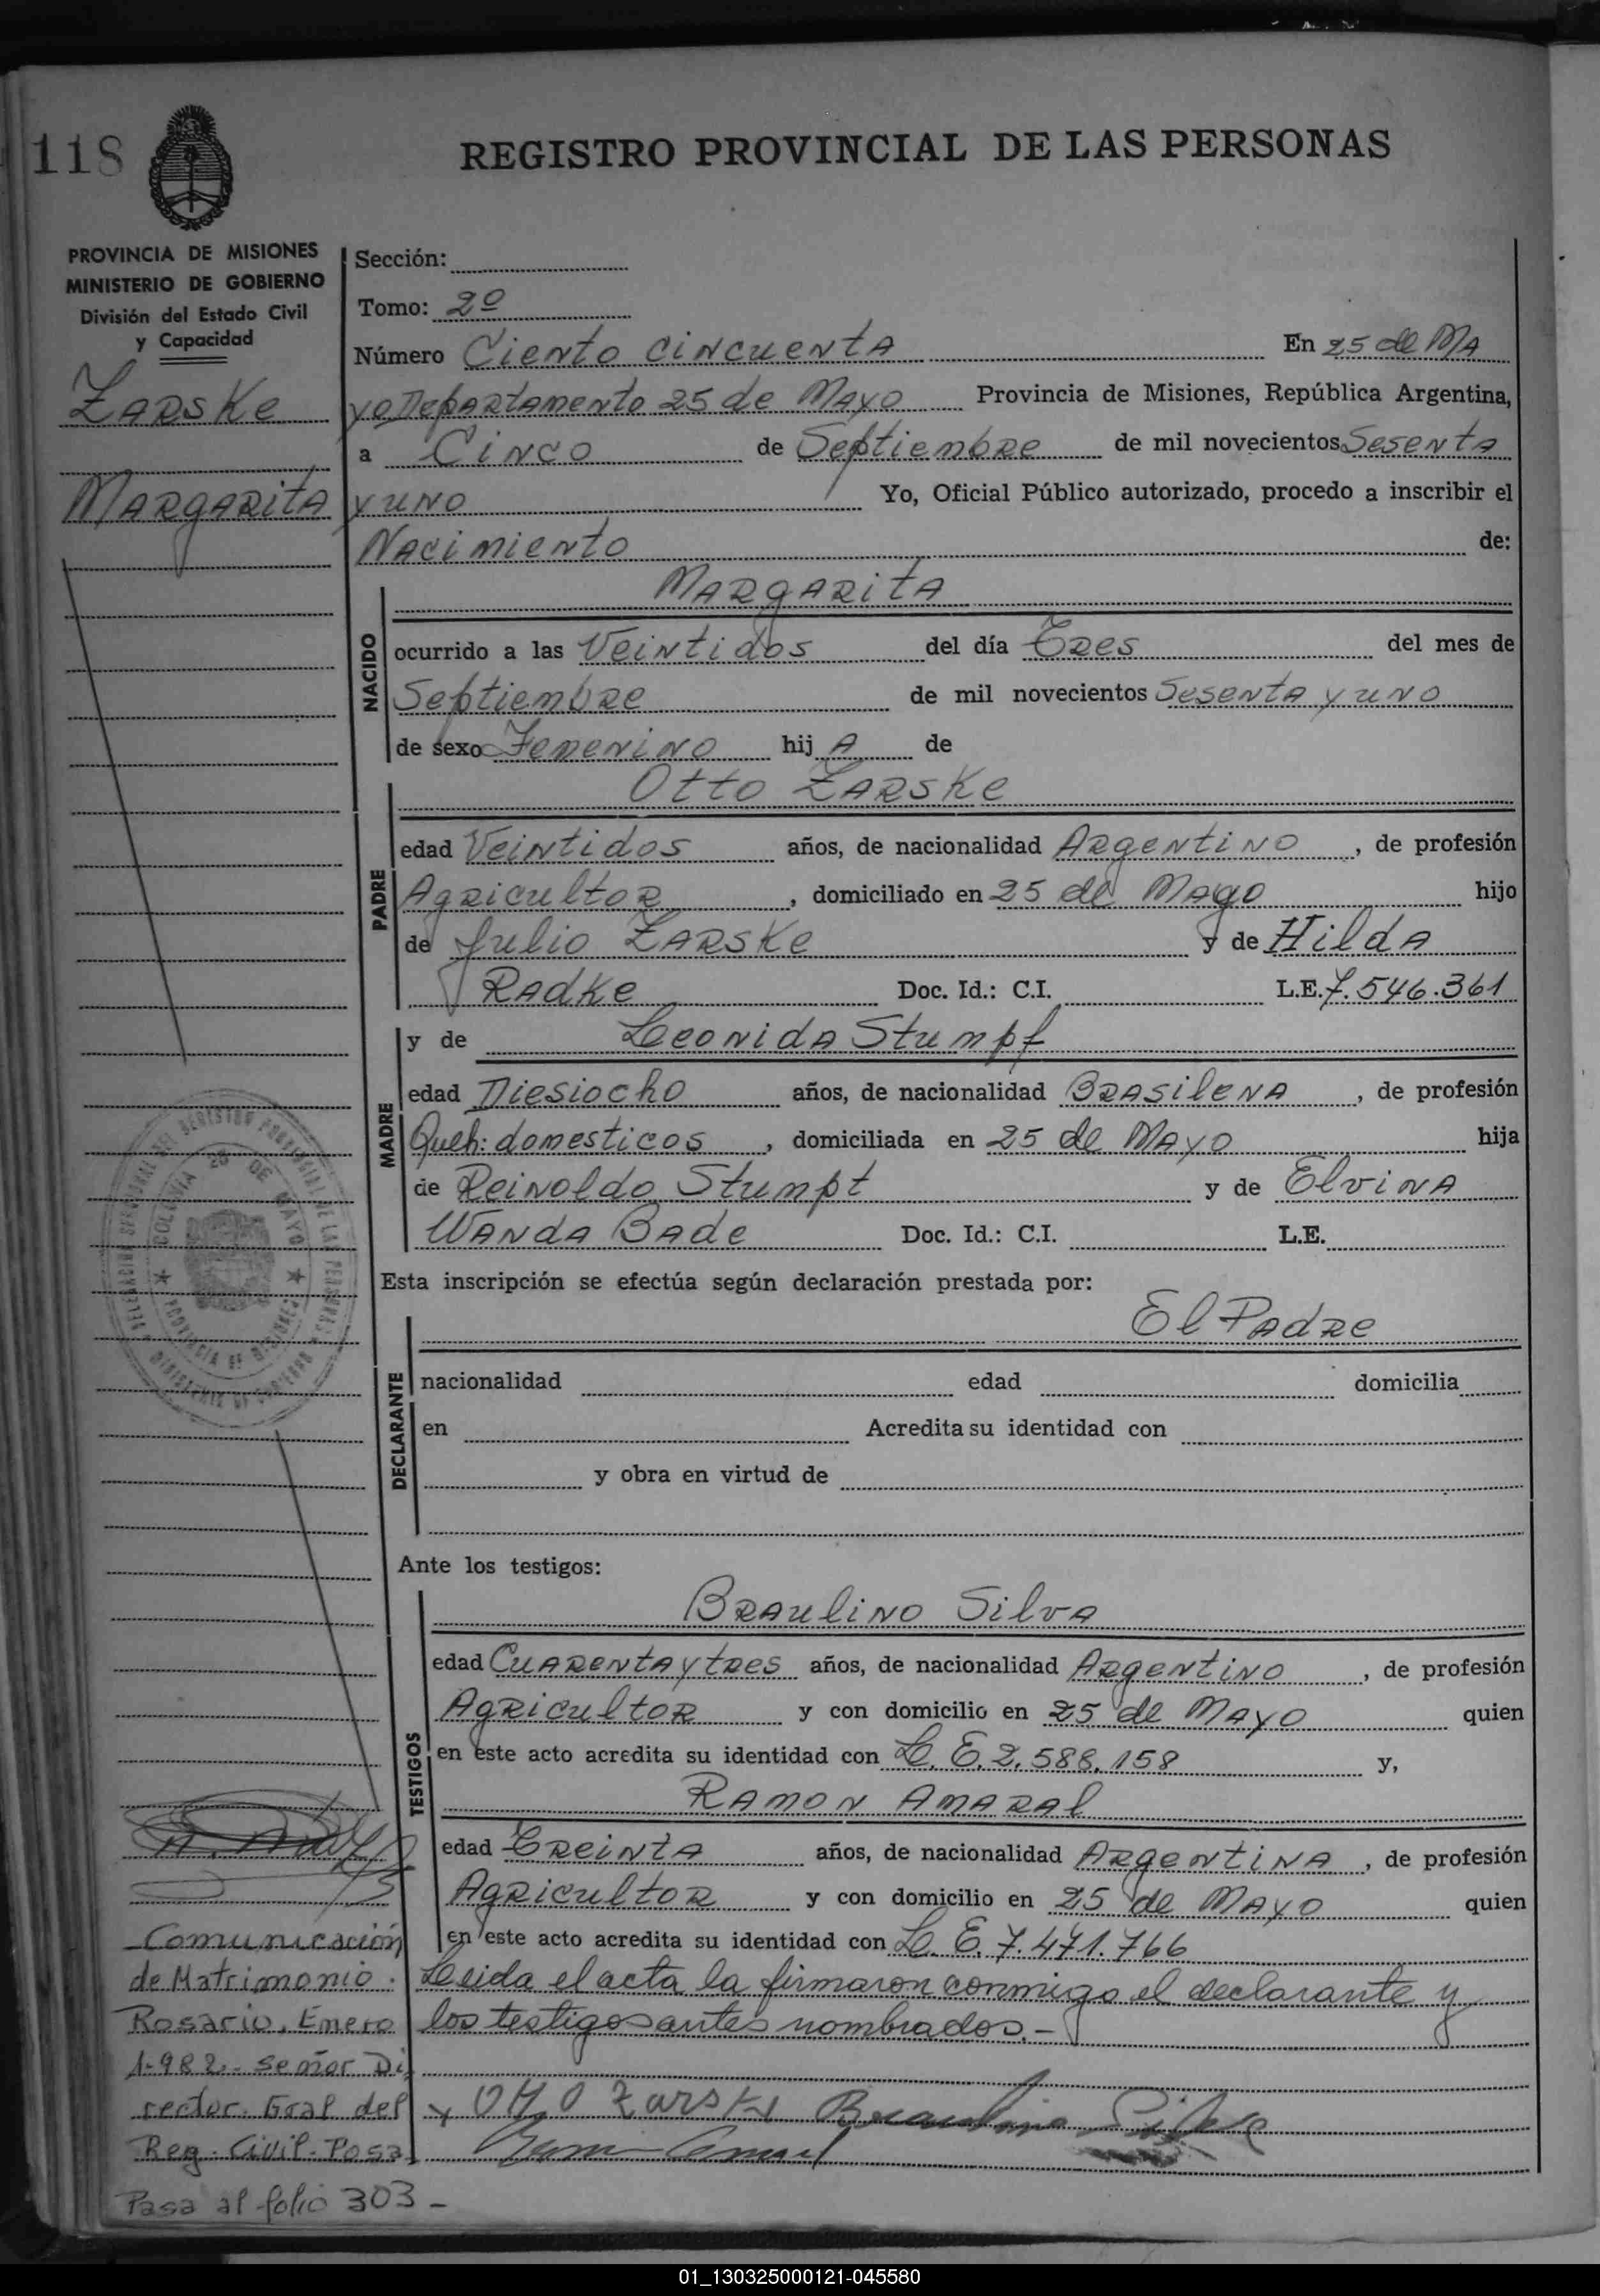 118
REGISTRO PROVINCIAL DE LAS PERSONAS
PROVINCIA DE MISIONES
MINISTERIO DE GOBIERNO
División del Estado Civil
y Capacidad
Zarske
Margarita
Sección:
Tomo: 2º
Número Ciento cincuenta En 25 de Ma
yo Departamento 25 de Mayo Provincia de Misiones, República Argentina,
a Cinco de Septiembre de mil novecientos Sesenta
y uno Yo, Oficial Público autorizado, procedo a inscribir el
Nacimiento de:
NACIDO
Margarita
ocurrido a las Veintidos del día Tres del mes de
Septiembre de mil novecientos Sesenta y uno
de sexo Femenino hij A de
PADRE
Otto Zarske
edad Veintidos años, de nacionalidad Argentino, de profesión
Agricultor, domiciliado en 25 de Mayo hijo
de Julio Zarske y de Hilda
Radke Doc. Id.: C.I. L.E. 7.546.361
MADRE
y de Leonida Stumpf
edad Diesiocho años, de nacionalidad Brasilena, de profesión
Queh: domesticos, domiciliada en 25 de Mayo hija
de Reinoldo Stumpt y de Elvina
Wanda Bade Doc. Id.: C.I. L.E.
Esta inscripción se efectúa según declaración prestada por:
DECLARANTE
El Padre
nacionalidad edad domicilia
en Acredita su identidad con
y obra en virtud de
Ante los testigos:
TESTIGOS
Braulino Silva
edad Cuarenta y tres años, de nacionalidad Argentino, de profesión
Agricultor y con domicilio en 25 de Mayo quien
en este acto acredita su identidad con L. E. 2.588.158 y,
Ramon Amaral
edad Treinta años, de nacionalidad Argentina, de profesión
Agricultor y con domicilio en 25 de Mayo quien
en este acto acredita su identidad con L. E. 7.471.766
Leida el acta la firmaron conmigo el declarante y
los testigos antes nombrados.-
Otto Zarske Braulino Silva
COLONIA 25 DE MAYO
PROVINCIA DE MISIONES
MINISTERIO DE GOBIERNO
Comunicación
de Matrimonio.
Rosario, Enero
1-982.- señor Di
rector. Gral del
Reg. Civil-Posa
Pasa al folio 303 -
01_130325000121-045580